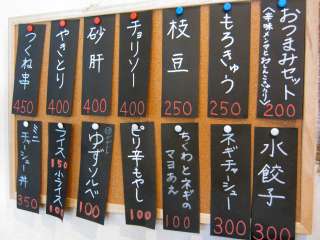 おつまみセット
200
もろきゅう
250
枝豆
250
チョリソー
400
砂肝
400
やきとり
400
つくね串
450
水餃子
300
ネギチャーシュー
300
ちくわとネギの
マヨあえ
100
ピリ辛もやし
100
ゆずソルベ
100
ライス 150
小ライス 100
ミニ
チャーシュー丼
350